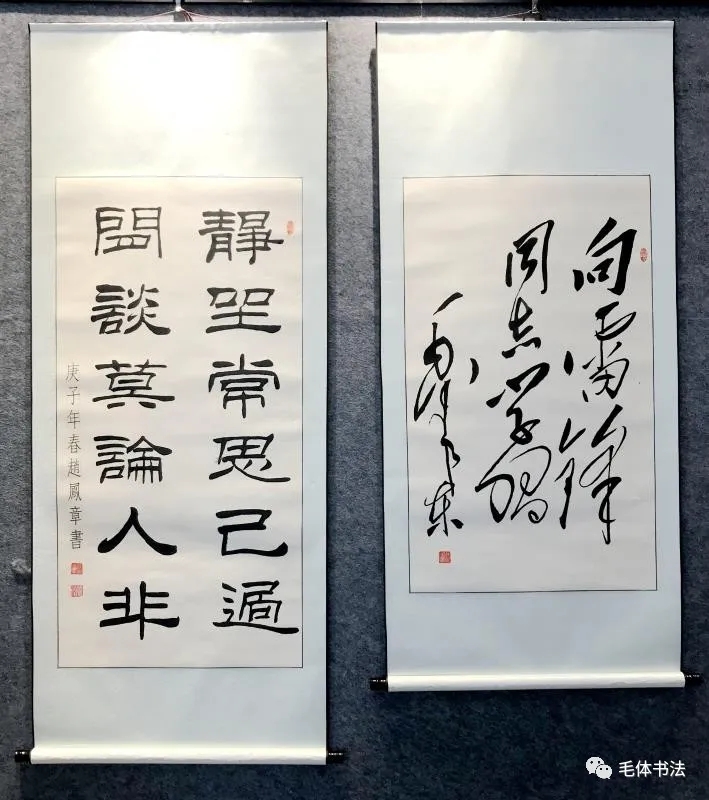 靜坐常思己過
閒談莫論人非
庚子年春趙鳳章書
向雷锋
同志学习
毛泽东
毛体书法